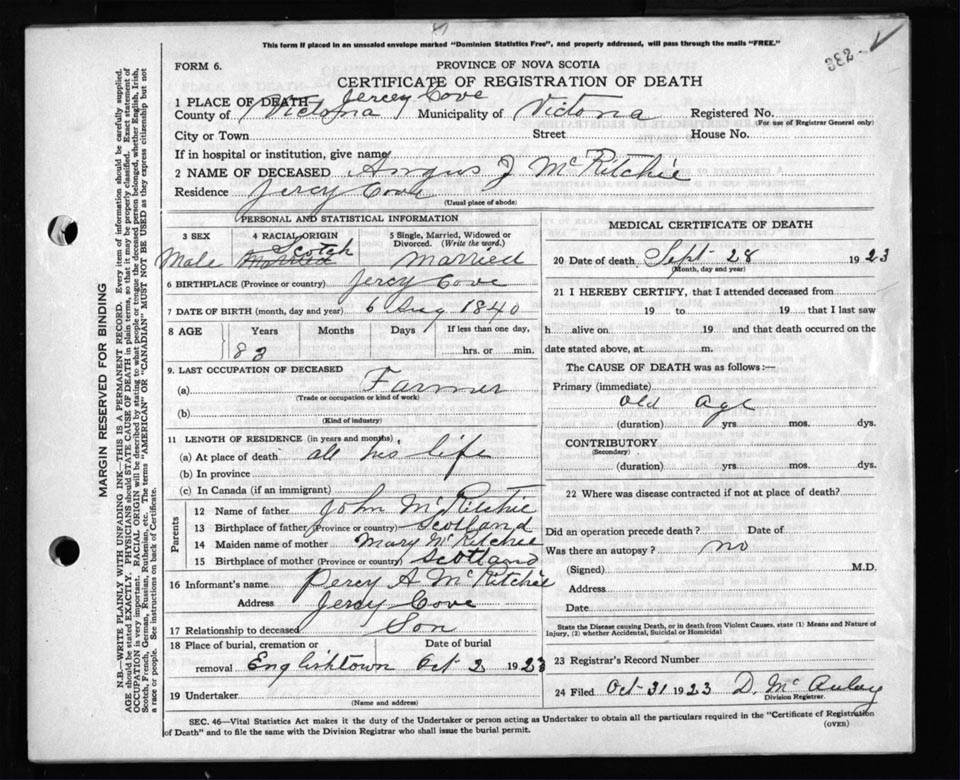 This form if placed in an unsealed envelope marked "Dominion Statistics Free", and properly addressed, will pass through the mails "FREE."
382-
FORM 6.
PROVINCE OF NOVA SCOTIA
CERTIFICATE OF REGISTRATION OF DEATH
1 PLACE OF DEATH Jercey Cove
County of Victoria Municipality of Victoria Registered No.
(For use of Registrar General only)
City or Town Street House No.
If in hospital or institution, give name
2 NAME OF DECEASED Angus J McRitchie
Residence Jercy Cove
(Usual place of abode)
PERSONAL AND STATISTICAL INFORMATION
3 SEX
Male
4 RACIAL ORIGIN
Scotch
Married
5 Single, Married, Widowed or
Divorced. (Write the word.)
Married
6 BIRTHPLACE (Province or country) Jercy Cove
7 DATE OF BIRTH (month, day and year) 6 Aug 1840
8 AGE Years Months Days If less than one day,
83 hrs. or min.
9. LAST OCCUPATION OF DECEASED
(a) Farmer
(Trade or occupation or kind of work)
(b)
(Kind of industry)
11 LENGTH OF RESIDENCE (in years and months)
(a) At place of death all his life
(b) In province
(c) In Canada (if an immigrant)
Parents
12 Name of father John McRitchie
13 Birthplace of father (Province or country) Scotland
14 Maiden name of mother Mary McRitchie
15 Birthplace of mother (Province or country) Scotland
16 Informant's name Percy A McRitchie
Address Jercy Cove
17 Relationship to deceased Son
18 Place of burial, cremation or Date of burial
removal Englishtown Oct 2 1923
19 Undertaker
(Name and address)
MEDICAL CERTIFICATE OF DEATH
20 Date of death Sept 28 1923
(Month, day and year)
21 I HEREBY CERTIFY, that I attended deceased from
19 to 19 that I last saw
h alive on 19 and that death occurred on the
date stated above, at m.
The CAUSE OF DEATH was as follows:—
Primary (immediate)
Old age
(duration) yrs. mos. dys.
CONTRIBUTORY
(Secondary)
(duration) yrs. mos. dys.
22 Where was disease contracted if not at place of death?
Did an operation precede death? Date of
Was there an autopsy? no
(Signed) M.D.
Address
Date
State the Disease causing Death, or in death from Violent Causes, state (1) Means and Nature of
Injury, (2) whether Accidental, Suicidal or Homicidal
23 Registrar's Record Number
24 Filed Oct 31 1923 D. McAulay
Division Registrar.
SEC. 46—Vital Statistics Act makes it the duty of the Undertaker or person acting as Undertaker to obtain all the particulars required in the "Certificate of Registration
of Death" and to file the same with the Division Registrar who shall issue the burial permit.
(OVER)
MARGIN RESERVED FOR BINDING
N.B.—WRITE PLAINLY WITH UNFADING INK—THIS IS A PERMANENT RECORD. Every item of information should be carefully supplied.
AGE should be stated EXACTLY. PHYSICIANS should STATE CAUSE OF DEATH in plain terms, so that it may be properly classified. Exact statement of
OCCUPATION is very important. RACIAL ORIGIN will be described by stating to what people or tongue the deceased person belonged, whether English, Irish,
Scotch, French, German, Russian, Ruthenian, etc. The terms "AMERICAN" OR "CANADIAN" MUST NOT BE USED as they express citizenship but not
a race or people. See instructions on back of Certificate.